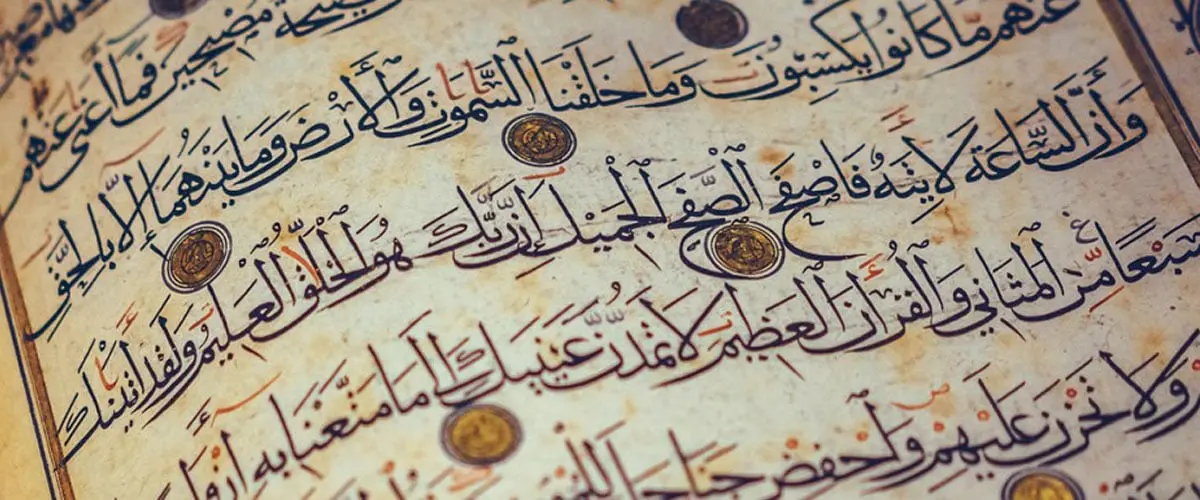 مصبحين فما أغنى عنهم
عنهم ما كانوا يكسبون وما خلقنا السموت والأرض وما بينهما إلا بالحق
وأن الساعة لاتية فاصفح الصفح الجميل إن ربك هو الخلق العليم ولقد اتينك
سبعا من المثاني والقرءان العظيم لا تمدن عينيك إلى ما متعنا به أزوا
ولا تحزن عليهم واخفض جناحك